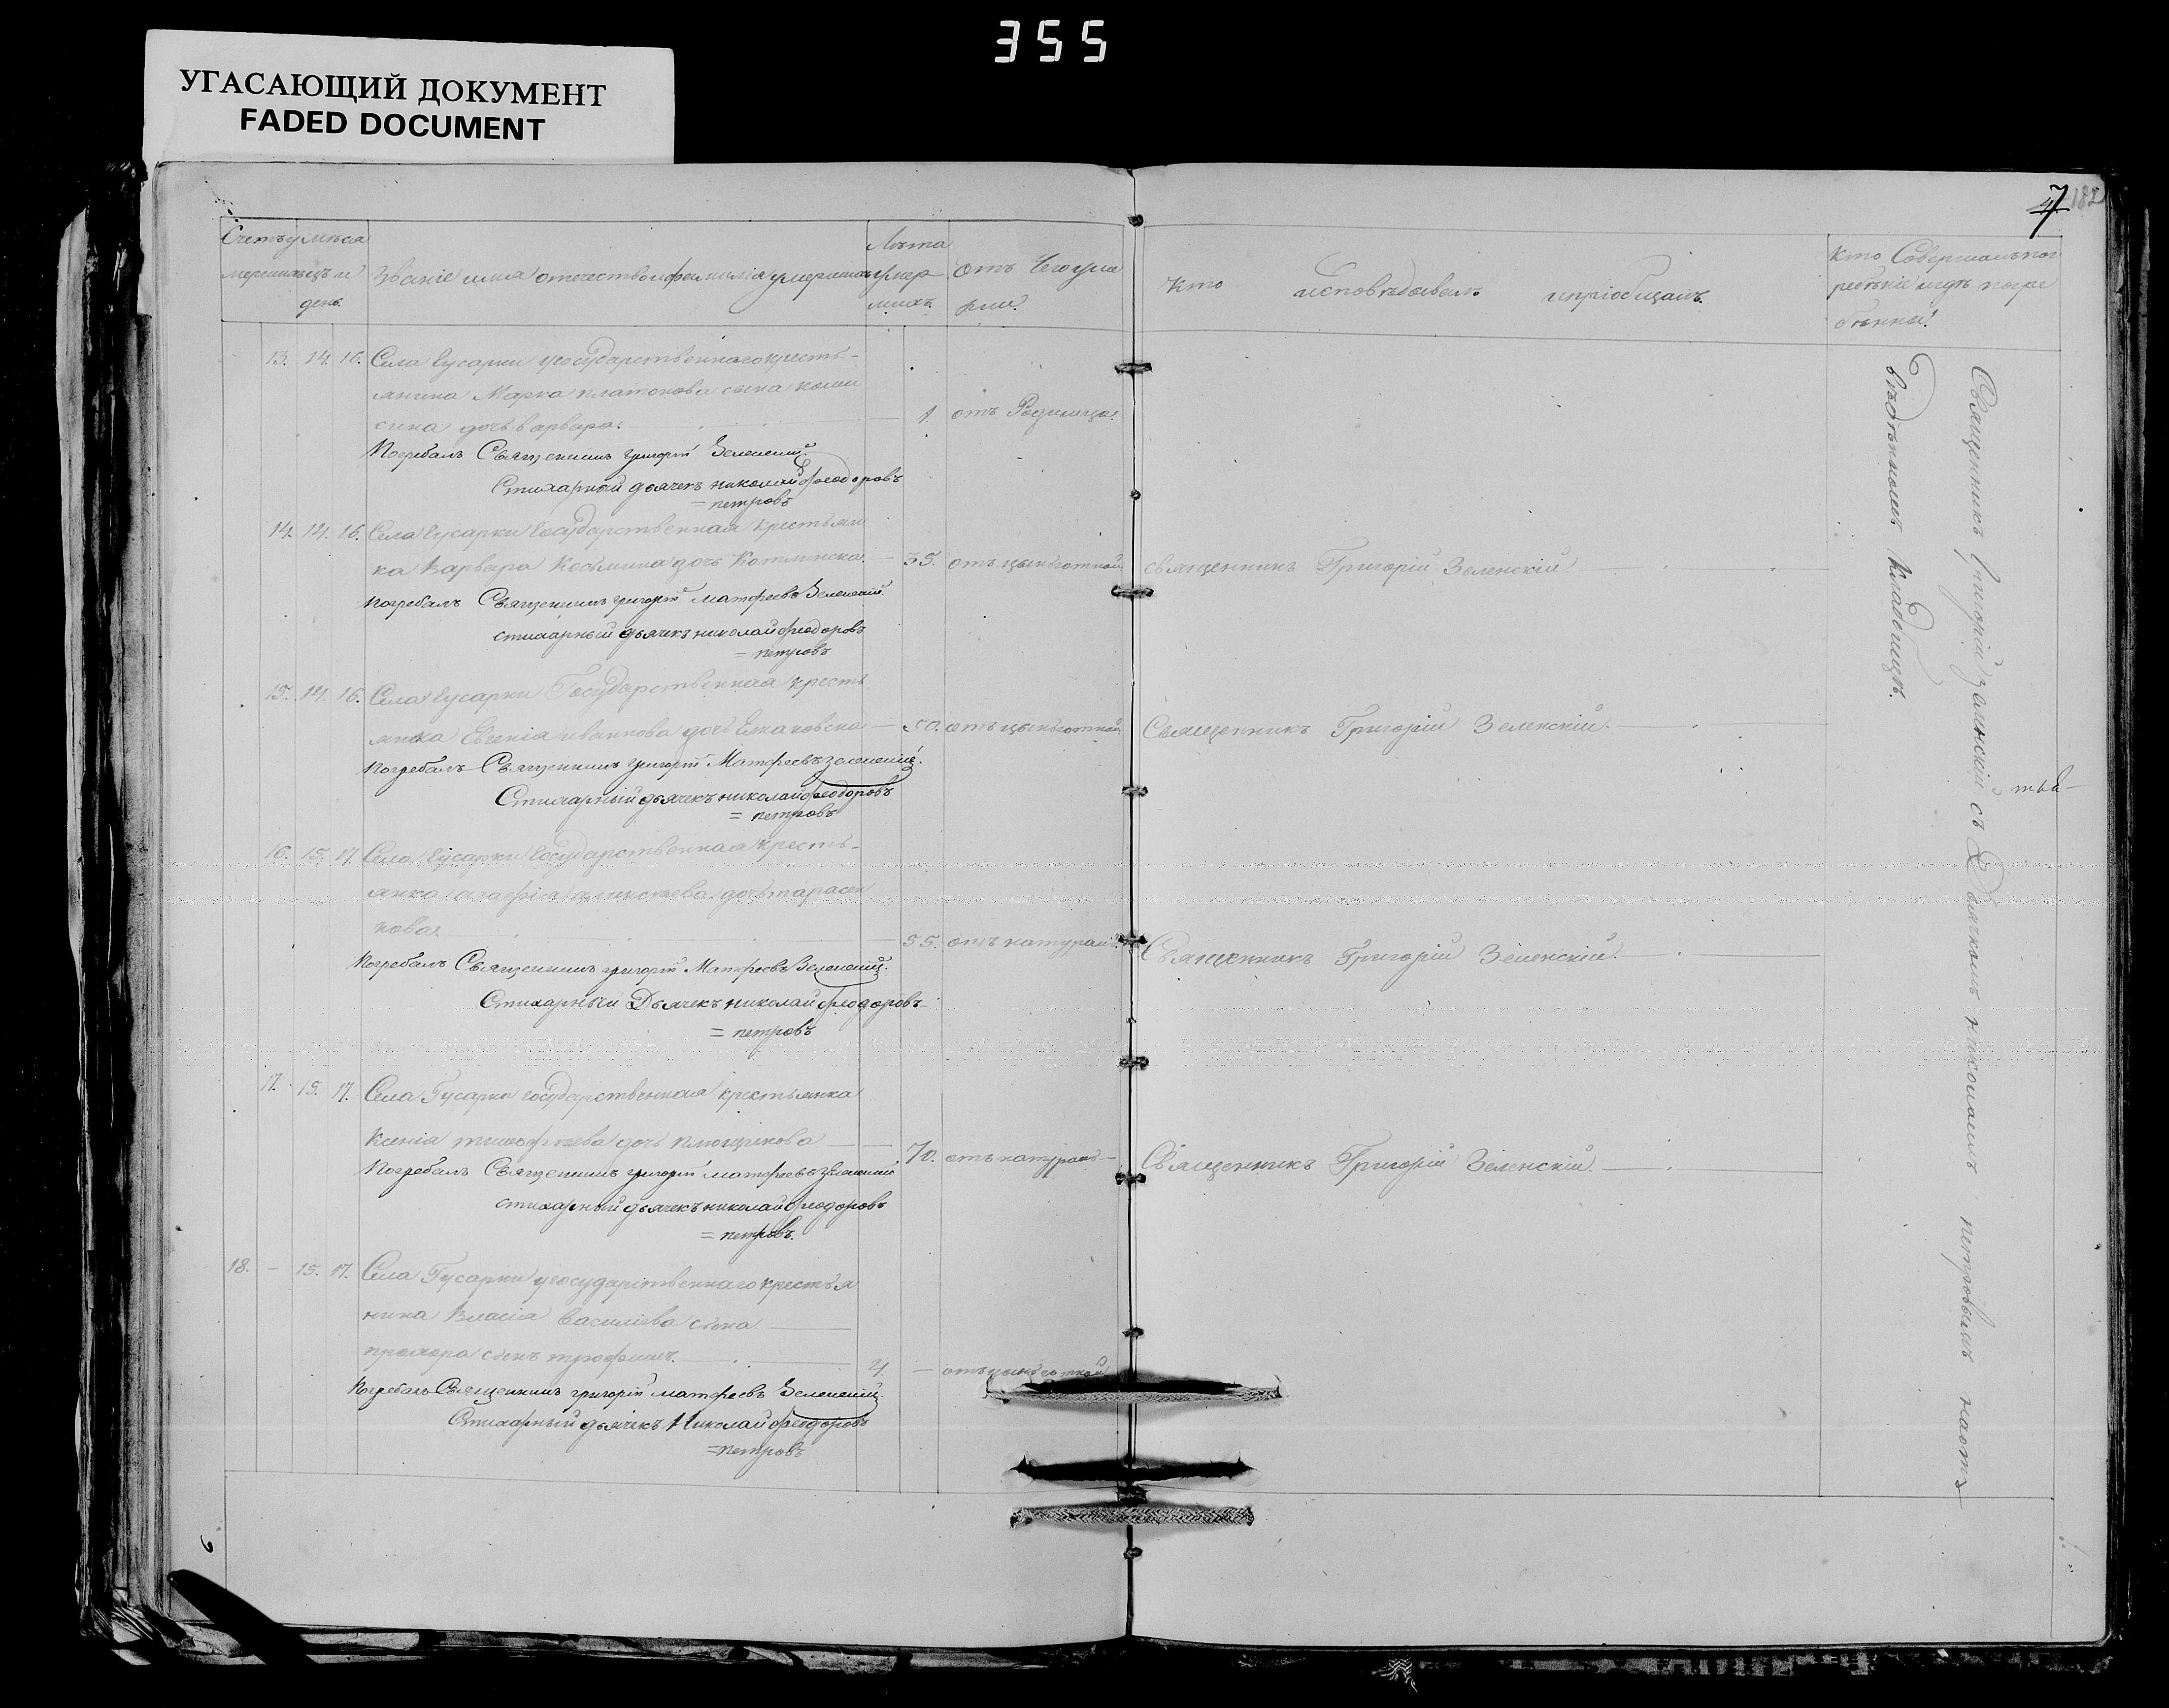 355
УГАСАЮЩИЙ ДОКУМЕНТ
FADED DOCUMENT
7 182
Счетъ у мѣся Лѣта
мершихъ ецъ и Званіе имя отечество и фамилія умершихъ умер отъ чего уме
день. шихъ. рли?
Кто исповѣдывалъ и пріобщалъ.
Кто Совершалъ пог
ребѣніе и гдѣ погре
бѣнны?
13. 14. 16. Села Гусарки у государственнаго кресть-
янина Марка платонова сына
дочь варвара. 1 отъ Родимца.
Погребалъ Священникъ григорій Зеленскій.
Стихарный дьячекъ николай феодоровъ
= петровъ
14. 14. 16. Села Гусарки Государственная крестьян
ка Варвара Косьмина дочь 35. отъ цынготной священникъ Григорій Зеленскій
Погребалъ Священникъ григорій матфеевъ Зеленскій.
стихарный дьячекъ николай феодоровъ
= петровъ
15. 14. 16. Села Гусарки Государственная кресть
янка Евгенія иваннова дочь 50. отъ цынготной Священникъ Григорій Зеленскій.
Погребалъ Священникъ григорій Матфеевъ зеленскій.
Стихарный дьячекъ николай феодоровъ
= петровъ
16. 15. 17. Села Гусарки Государственная кресть-
янка агафія алексѣева дочь тарасен
кова. 55. отъ натуралн. Священникъ Григорій Зеленскій.
Погребалъ Священникъ григорій Матфеевъ Зеленскій.
Стихарный Дьячекъ николай феодоровъ
= петровъ
17. 15. 17. Села Гусарки государственная крестьянка
Ксенія тимофѣева дочь 70. отъ натуралн. Священникъ Григорій Зеленскій.
Погребалъ Священникъ григорій матфеевъ зеленскій
стихарный дьячекъ николай феодоровъ
= петровъ.
18. - 15. 17. Села Гусарки у государственнаго крестья
нина Власія василіева сына
прохора сынъ трофимъ. 4 - отъ цынготной
Погребалъ Священникъ григорій матфеевъ Зеленскій.
Стихарный дьячекъ Николай феодоровъ
= петровъ
Священникъ Григорій зеленскій съ Дьячкомъ николаемъ петровымъ наотъ
вѣденномъ Кладбищѣ.
6